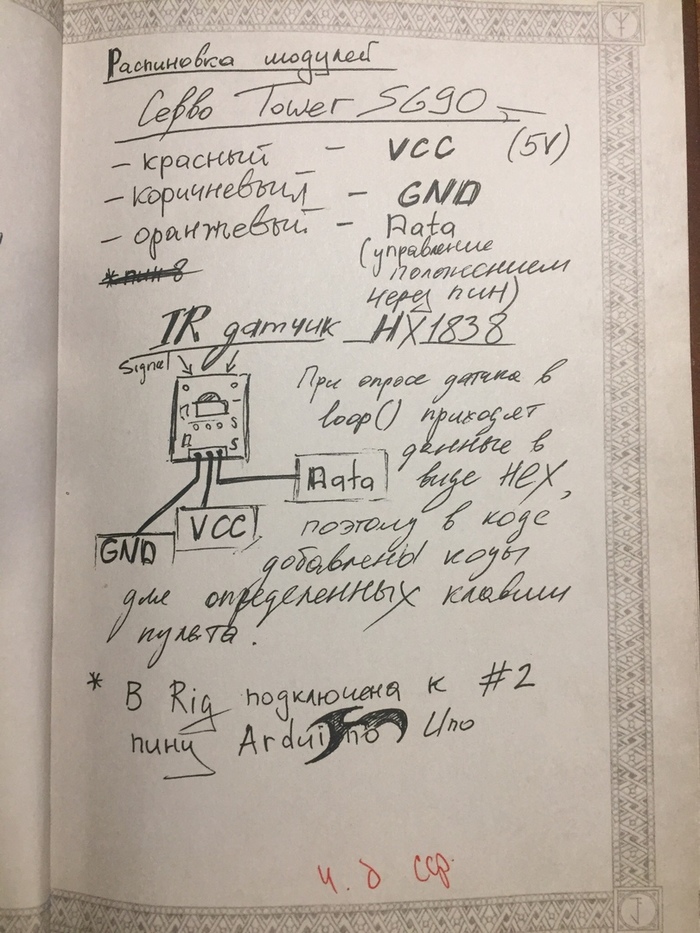 Распиновка модулей
Серво Tower SG90
– красный – VCC (5V)
– коричневый – GND
– оранжевый – Data
(управление
положением
через пин)
* пин 8
IR датчик HX1838
Signal
При опросе датчика в
loop() приходят
данные в
виде HEX,
поэтому в коде
добавлены коды
для определенных клавиш
пульта.
S
S
Data
VCC
GND
* В Rig подключена к #2
пину Arduino Uno